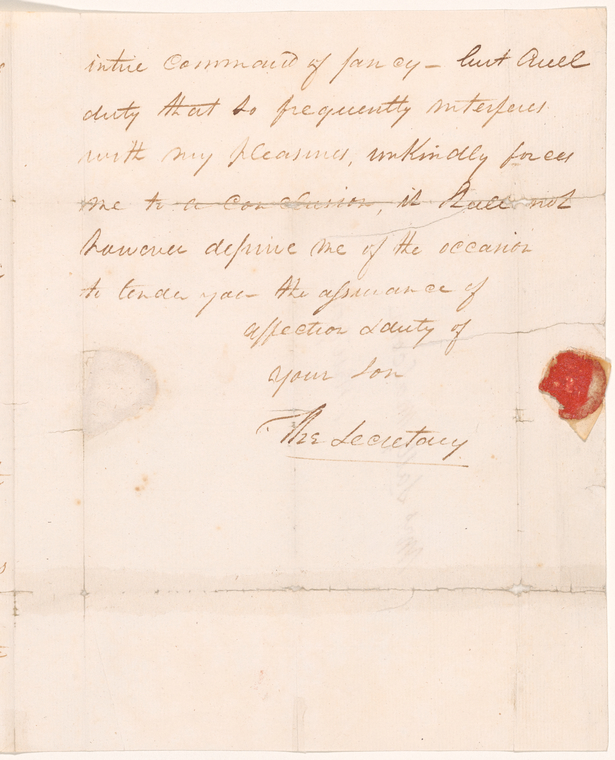 intire command of fancy - but cruel
duty that so frequently interferes
with my pleasures, unkindly forces
me to a conclusion, it shall not
however deprive me of the occasion
to tender you the assurance of
affection & duty of
your Son
The Secretary